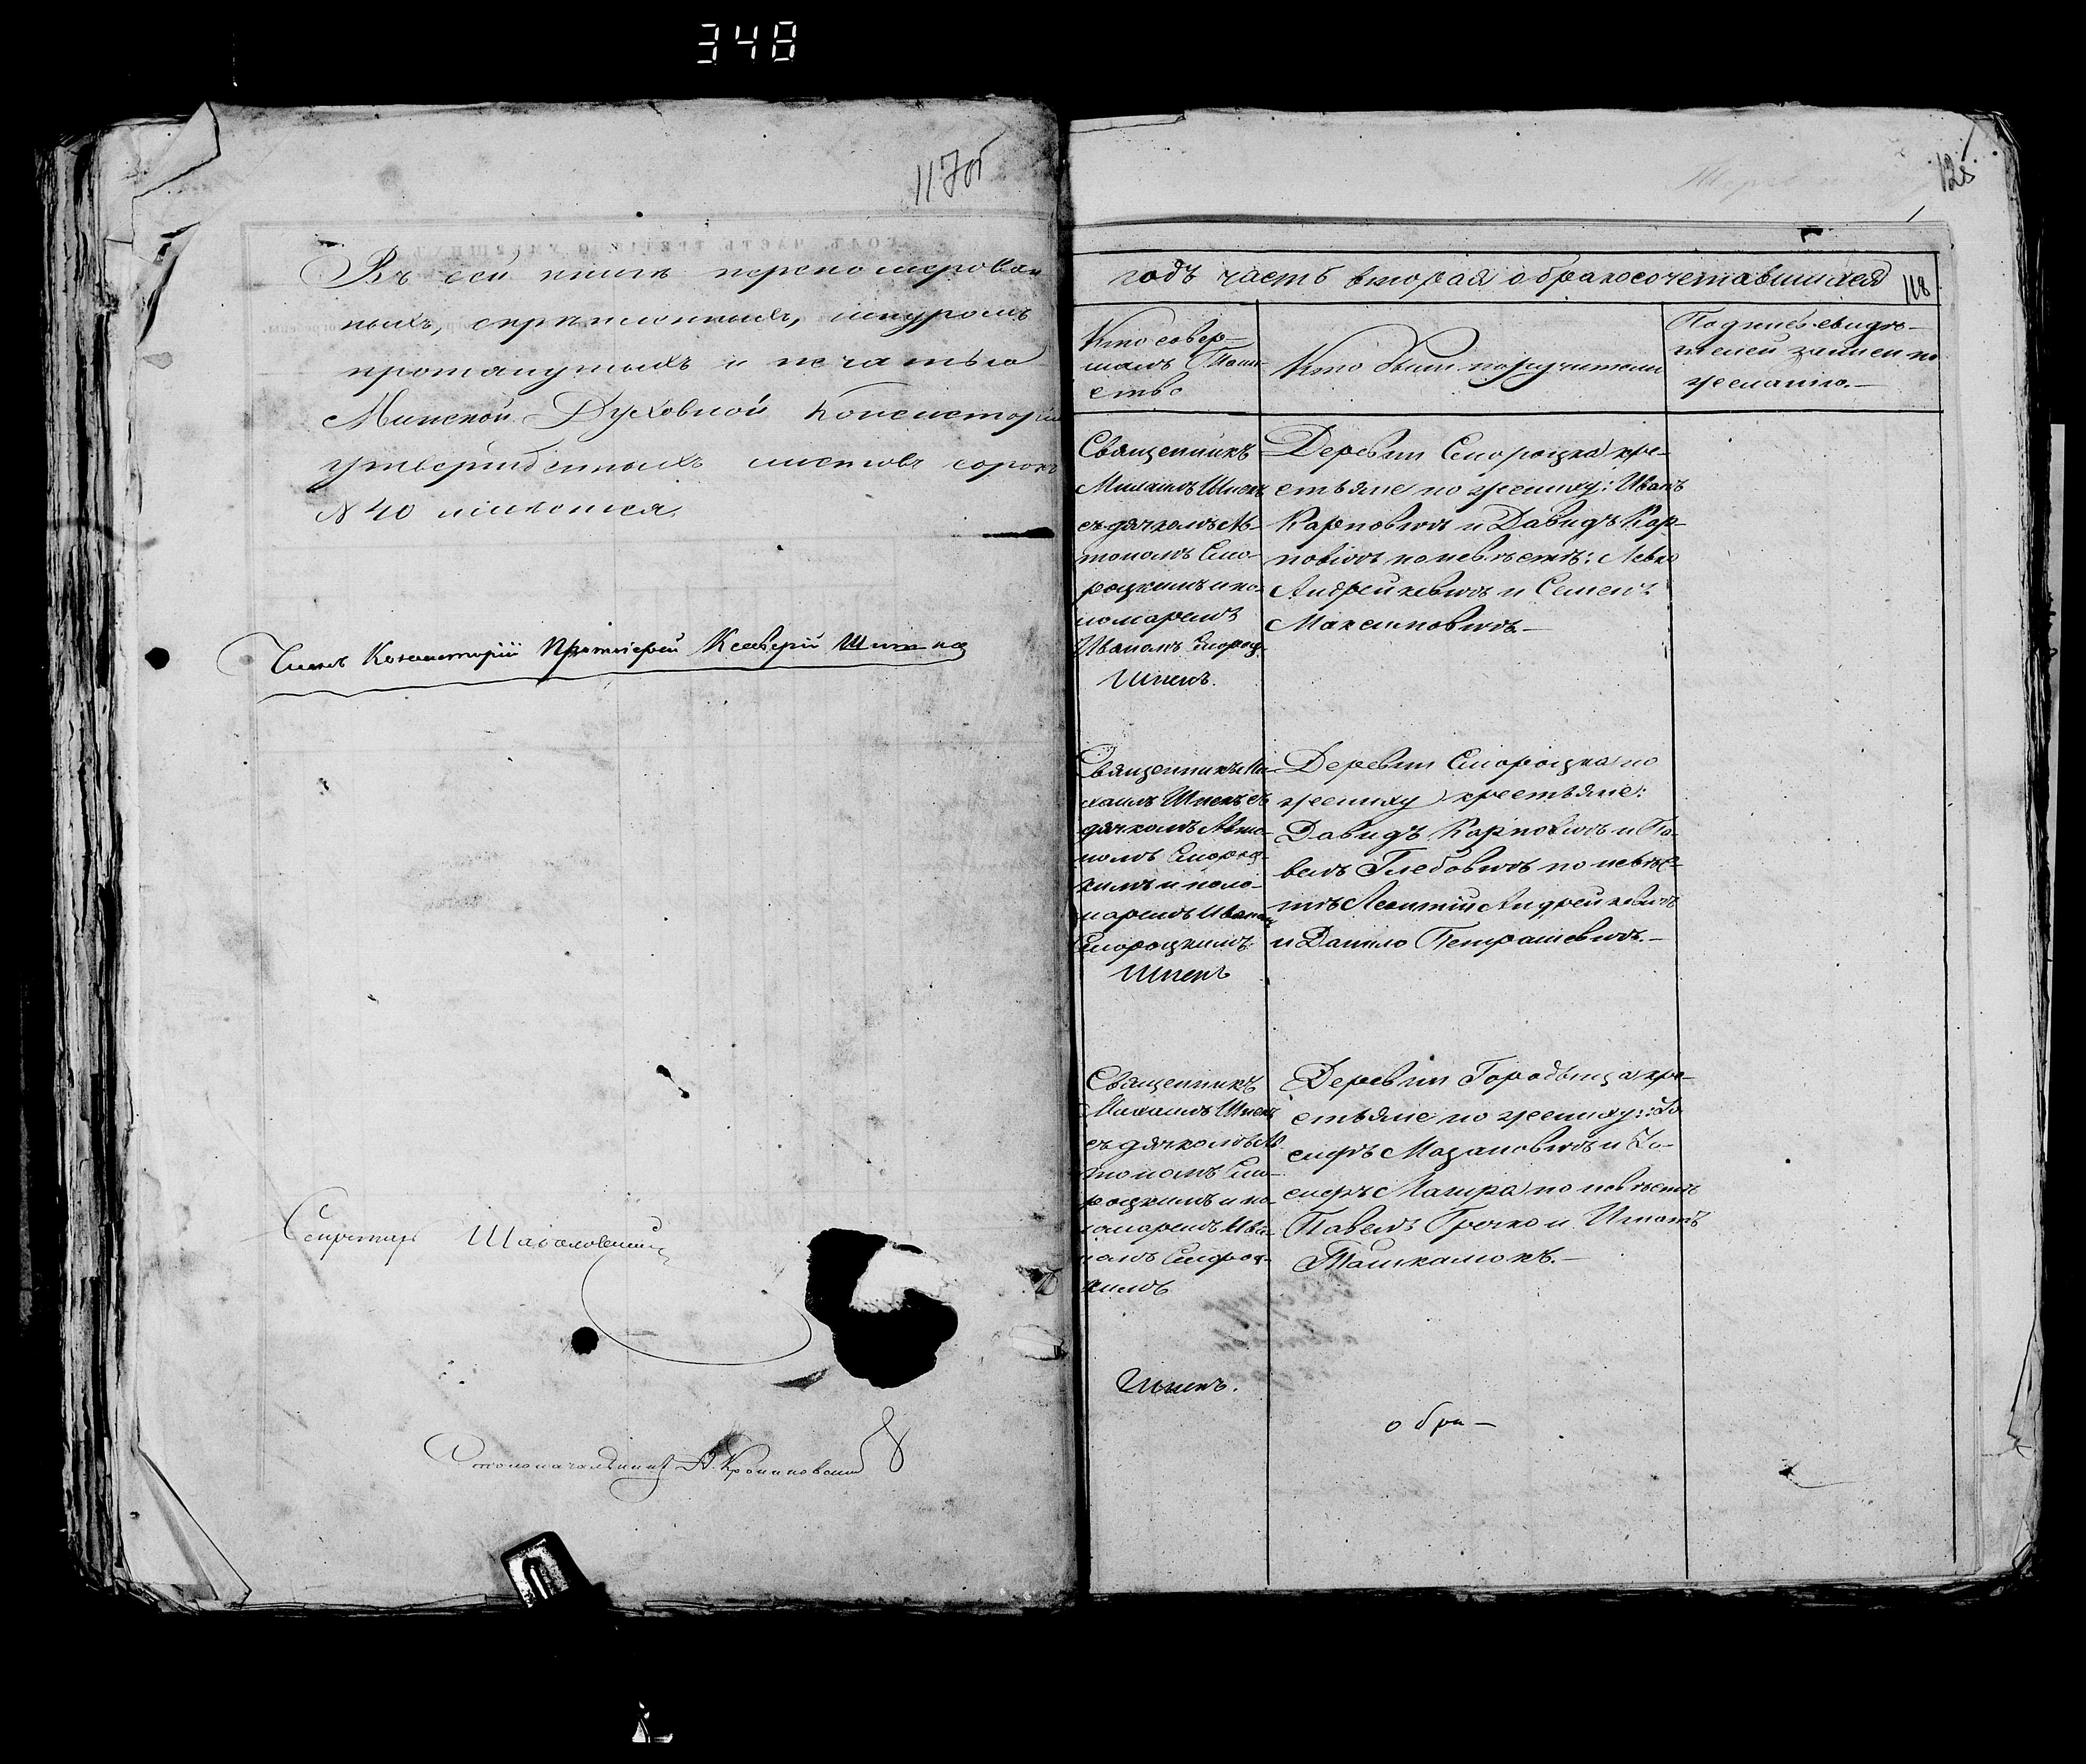 348
117об
Въ сей книгѣ перенумерован
ныхъ, скрѣпленныхъ, шнуромъ
протянутыхъ и печатью
Минской Духовной Консисторіи
утвержденныхъ листовъ сорокъ
№ 40 имѣется.
Членъ Консисторіи Протоіерей
Секретарь
Столоначальникъ
128
годъ часть вторая о бракосочетавшихся
118
Кто совер-
шалъ Таин-
ство
Кто были поручители
Подпись свидѣ-
телей записи по
желанію.-
Священникъ
Михаилъ Шпекъ
съ дячкомъ Ан-
тономъ Смо-
рощкимъ и по-
номаремъ
Иваномъ Смороц.
Шпекъ.
Деревни Сморощка кре-
стьяне по жениху: Иванъ
Карповичъ и Давидъ Кар-
повичъ по невѣстѣ: Левко
Андрейкевичъ и Семенъ
Максимовичъ.-
Священникъ Ми-
хаилъ Шпекъ съ
дячкомъ Анто-
номъ Смороц-
кимъ и поно-
маремъ Иваномъ
Сморощкимъ
Шпекъ
Деревни Сморощка по
жениху крестьяне:
Давидъ Карповичъ и Па-
велъ Глебовичъ по невѣс-
тѣ Леонтій Андрейкевичъ
и Данило Петрашевичъ.-
Священникъ
Михаилъ Шпекъ
съ дячкомъ Ан
тономъ Смо-
рощкимъ и по-
номаремъ Ива-
номъ Смороц-
кимъ
Шпекъ.
Деревни Городьища кре-
стьяне по жениху: Іо
сифъ Мазановичъ и Іо-
сифъ Мацура по невѣстѣ
Павелъ Гречко и Игнатъ
Ташкамокъ.-